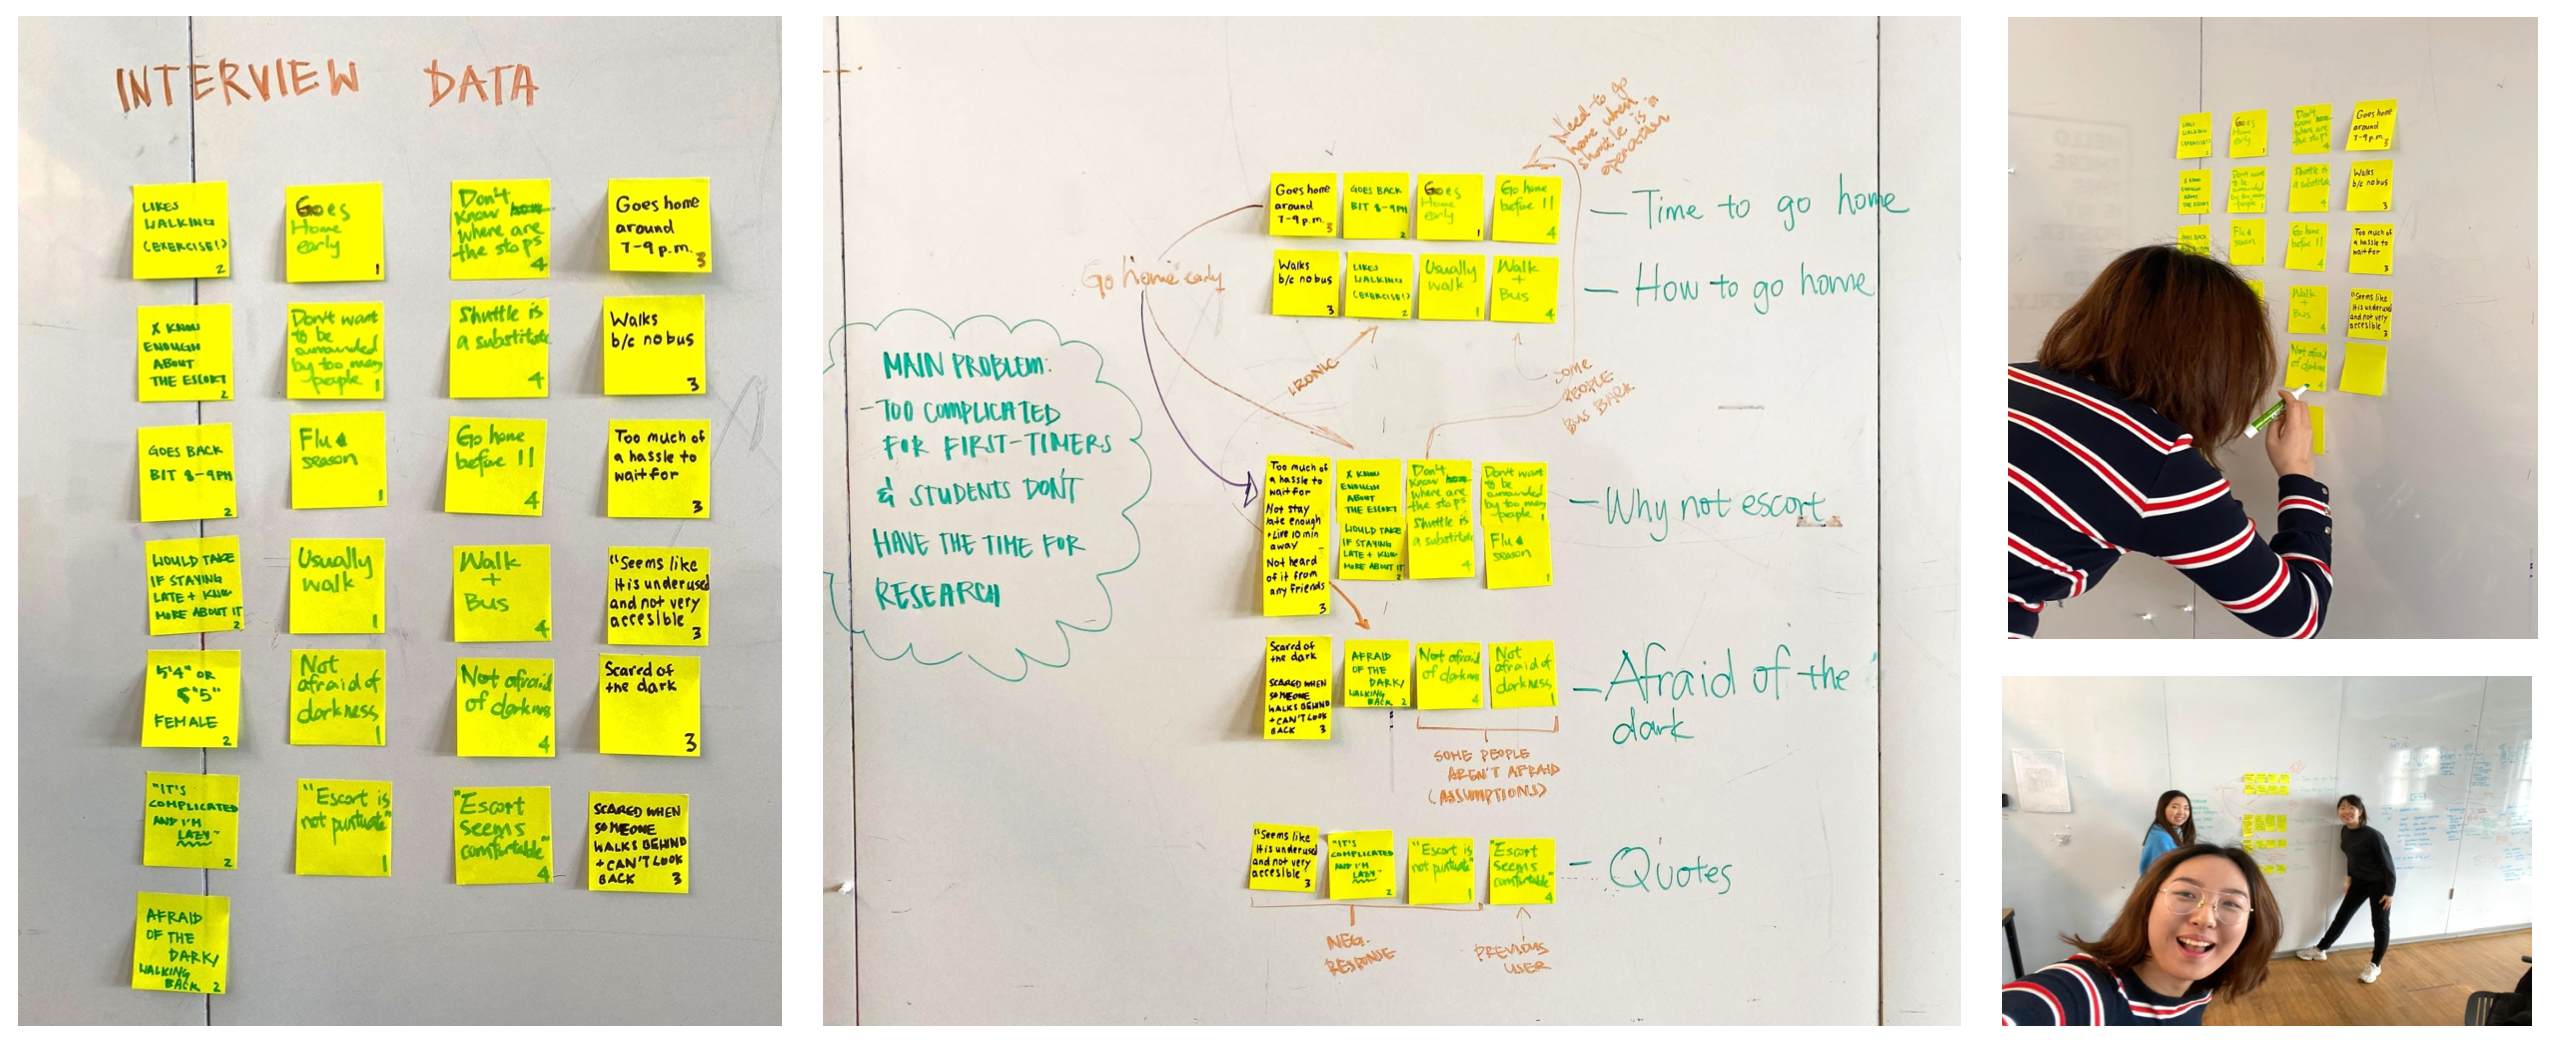 INTERVIEW DATA
LIKES
WALKING
(EXERCISE!)
2
Goes
Home
early
1
Don't
Know
where are
the stops
4
Goes home
around
7-9 p.m.
3
X KNOW
ENOUGH
ABOUT
THE ESCORT
2
Don't want
to be
surrounded
by too many
people
1
Shuttle is
a substitute
4
Walks
b/c no bus
3
GOES BACK
BIT 8-9PM
2
Flu
season
1
Go home
before 11
4
Too much of
a hassle to
wait for
3
WOULD TAKE
IF STAYING
LATE + KNOW
MORE ABOUT IT
2
Usually
walk
1
Walk
+
Bus
4
"Seems like
it is underused
and not very
accesible
3
5'4" OR
5'5"
FEMALE
2
Not
afraid of
darkness
1
Not afraid
of darkness
4
Scared of
the dark
3
"IT'S
COMPLICATED
AND I'M
LAZY"
2
"Escort is
not puntuate"
1
"Escort
seems
comfortable"
4
SCARED WHEN
SOMEONE
WALKS BEHIND
+ CAN'T LOOK
BACK
3
AFRAID
OF THE
DARK/
WALKING
BACK
2
Need to go
home when
shuttle is in
operation
Goes home
around
7-9 p.m.
3
GOES BACK
BIT 8-9PM
2
Goes
Home
early
1
Go home
before 11
4
- Time to go home
Go home early
Walks
b/c no bus
3
LIKES
WALKING
(EXERCISE!)
2
Usually
walk
1
Walk
+
Bus
4
- How to go home
IRONIC
SOME
PEOPLE
BUS BACK
MAIN PROBLEM:
- TOO COMPLICATED
FOR FIRST-TIMERS
& STUDENTS DON'T
HAVE THE TIME FOR
RESEARCH
Too much of
a hassle to
wait for
Not stay
late enough
+ Live 10 min
away
Not heard
of it from
any friends
3
X KNOW
ENOUGH
ABOUT
THE ESCORT
WOULD TAKE
IF STAYING
LATE + KNOW
MORE ABOUT IT
2
Don't
Know
where are
the stops
Shuttle is
a substitute
4
Don't want
to be
surrounded
by too many
people 1
Flu
season
1
- Why not escort
Scared of
the dark
SCARED WHEN
SOMEONE
WALKS BEHIND
+ CAN'T LOOK
BACK
3
AFRAID
OF THE
DARK/
WALKING
BACK 2
Not afraid
of darkness
4
Not
afraid of
darkness
1
- Afraid of the
dark
SOME PEOPLE
AREN'T AFRAID
(ASSUMPTIONS)
"Seems like
it is underused
and not very
accesible
3
"IT'S
COMPLICATED
AND I'M
LAZY"
2
"Escort is
not puntuate"
1
"Escort
Seems
comfortable"
4
- Quotes
NEG.
RESPONSE
PREVIOUS
USER
LIKES
WALKING
(EXERCISE!)
2
Goes
Home
early
1
Don't
Know
where are
the stops
4
Goes home
around
7-9 p.m.
3
X KNOW
ENOUGH
ABOUT
THE ESCORT
Don't want
to be
surrounded
by too many
people
Shuttle is
a substitute
4
Walks
b/c no bus
3
GOES BACK
Flu
season
1
Go home
before 11
4
Too much of
a hassle to
wait for
3
Walk
+
Bus
4
"Seems like
it is underused
and not very
accesible
3
Not afraid
of darkness
4